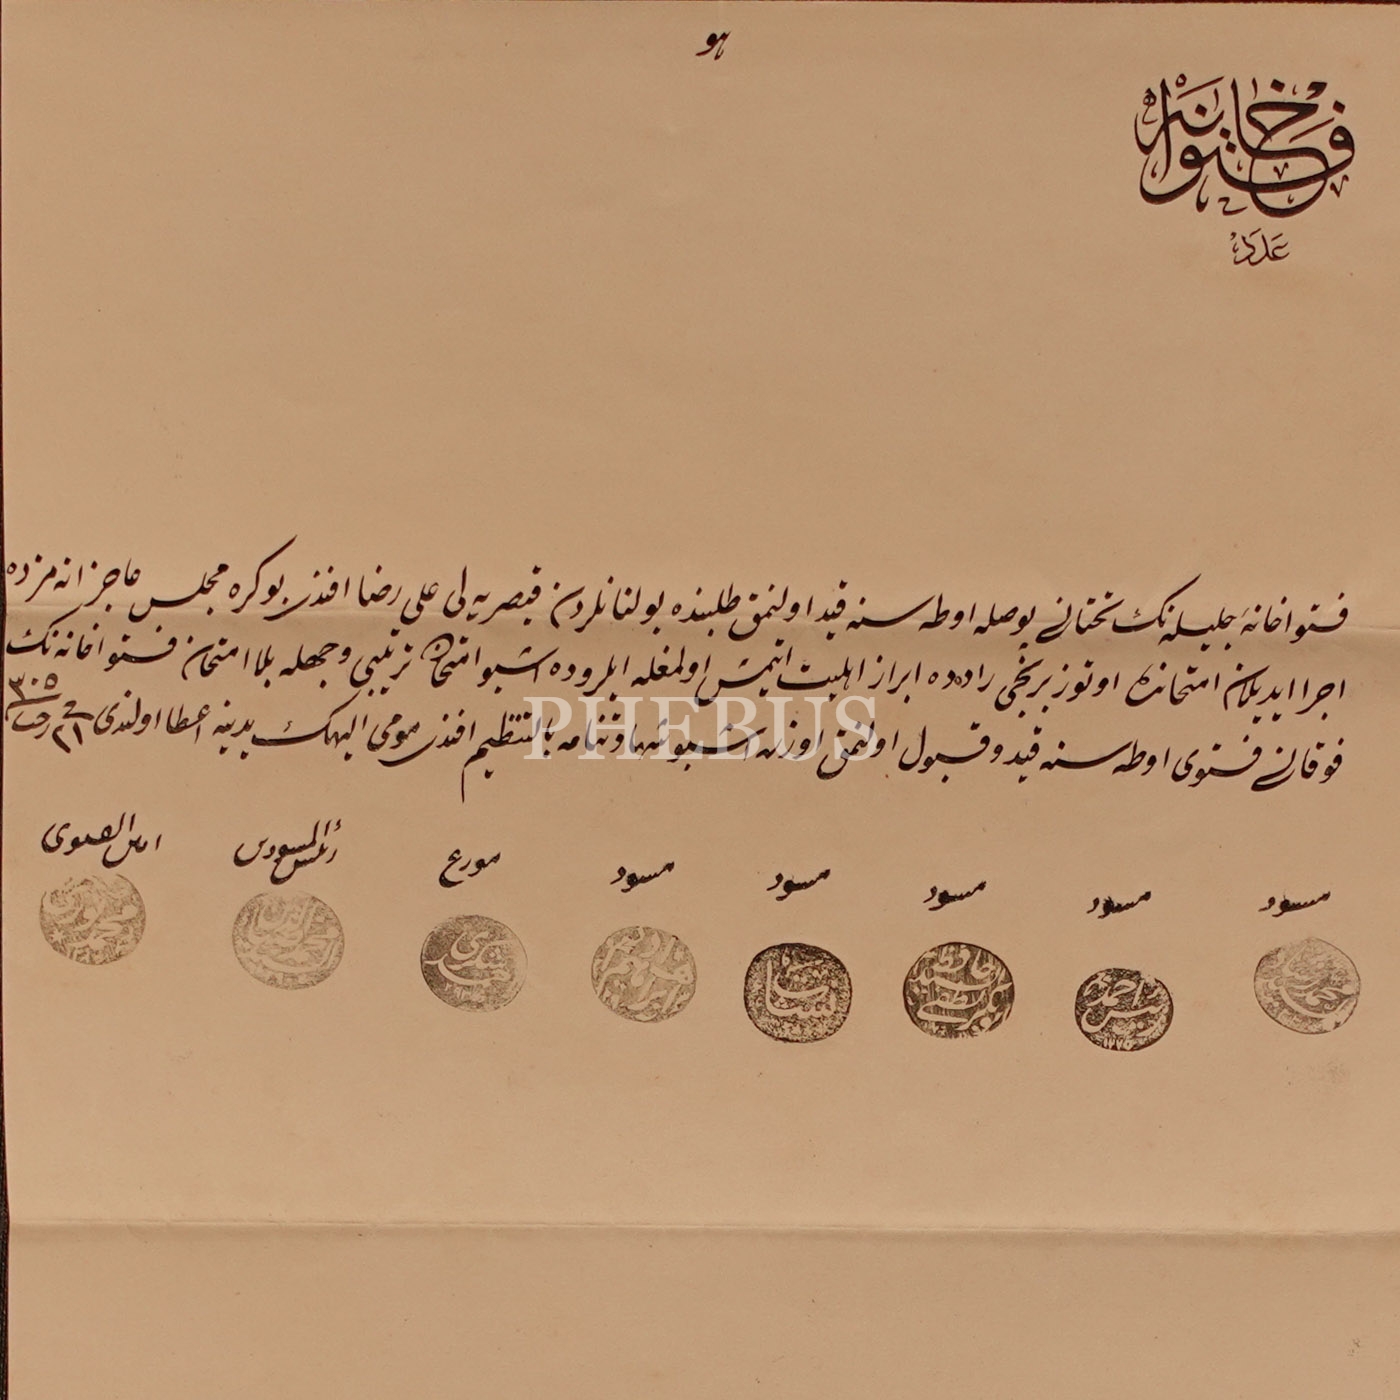 هو
فتواخانه
عدد
فتواخانهٔ جلیله‌نك تختانی پوصله اوطه‌سنه قید اولنمق طلبنده بولنانلردن قیصریه‌لی علی رضا افندی بو كره مجلس عاجزانه‌مزده
اجرا ایدیلان امتحانده اوتوز برنجی راده‌ده ابراز اهلیت ایتمش اولمغله ایلروده اشبو امتحان ترتیبی وجهله بلا امتحان فتواخانه‌نك
فوقانی فتوی اوطه‌سنه قید و قبول اولنمق اوزره اشبو شهادتنامه بالتنظیم افندی مومی الیهك یدینه اعطا اولندی فی ٢١ رجب ٣٠٥
مسود مسود مسود مسود مسود موزع رئیس المسودین امین الفتوی
PHEBUS